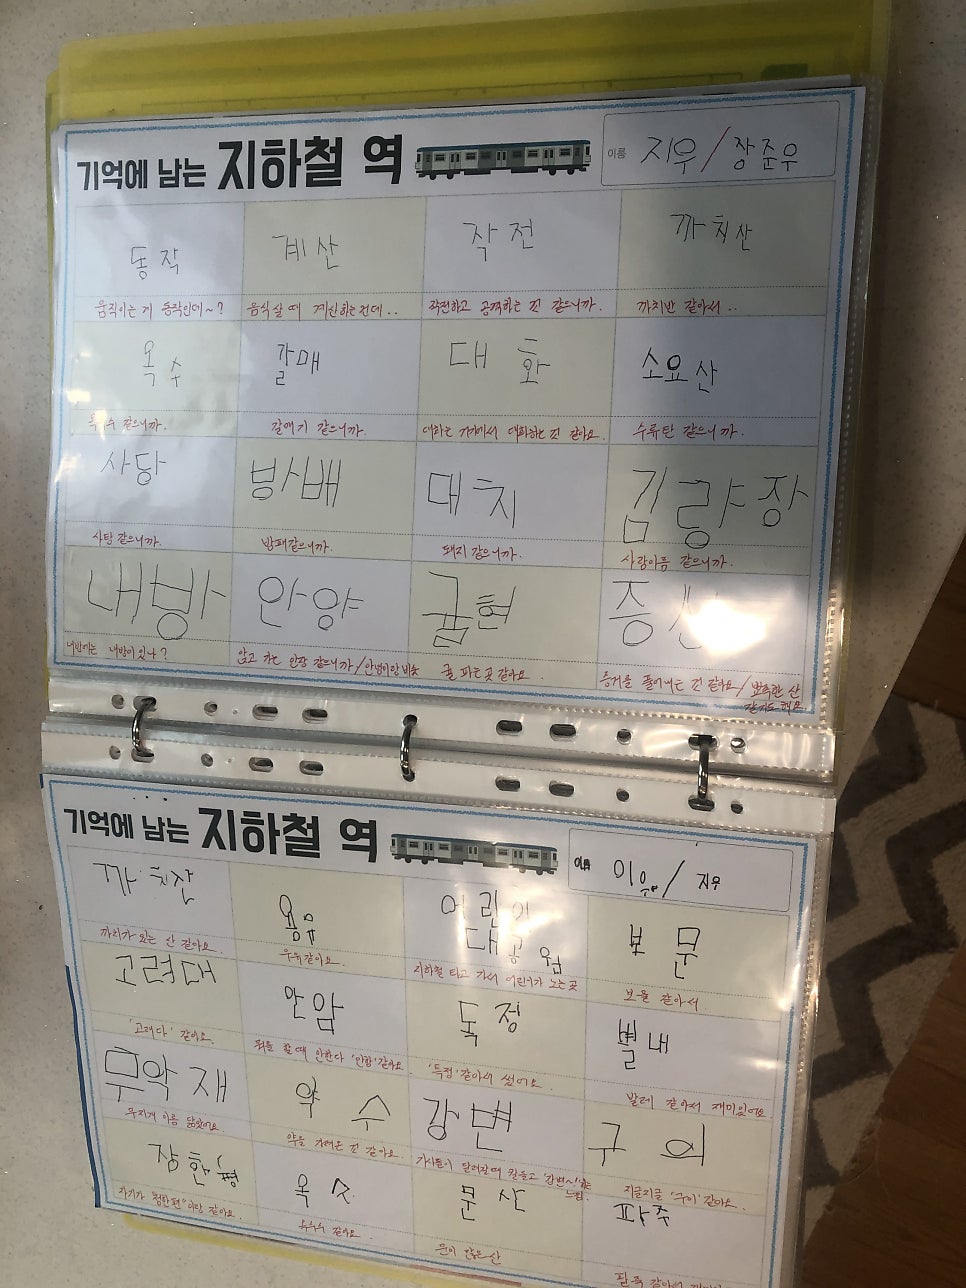 기억에 남는 지하철 역
이름 지우 / 장준우
동작 계산 작전 까치산
움직이는 게 동작인데~? 음식살 때 계산하는건데.. 작전하고 공격하는 것 같으니까. 까치반 같아서..
옥수 갈매 대화 소요산
수 같으니까. 갈매기 같으니까. 대화하는 것 같아요. 수류탄 같으니까.
사당 방배 대치 김량장
사탕같으니까. 방패같으니까. 돼지 같으니까. 사람이름 같으니까.
내방 안양 굴현 증산
내방에는 내방이 있나? 않고 가는 안장 같으니까/안녕이랑 비슷 굴 파는 곳 같아요. 증거를 풀어내는 것 같아요/뾰족한 산
같기도 해요
기억에 남는 지하철 역
이름 이음 / 지우
까치산 용유 어린이 보문
대공원
까치가 있는 산 같아요. 우유같아요. 지하철 타고 가서 어린이가 노는 곳 보물 같아서
고려대 안암 독정 별내
'고래다' 같아요. 뭐를 할 때 안한다 '안함' 같아요. '득점' 같아서 썼어요. 발레 같아서 재미있어요.
무악재 약수 강변 구의
무지개 이름 닮았어요 약을 가려운 것 같아요. 지글지글 '구이' 같아요.
장한평 옥수 문산 파주
옥수수 같아요. 문이 많은 산